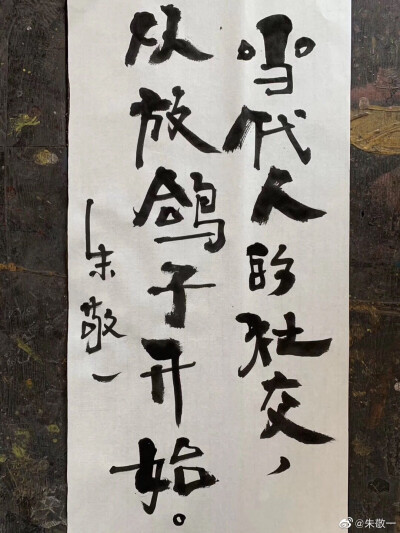 当代人的社交，
从放鸽子开始。
朱敬一
@朱敬一